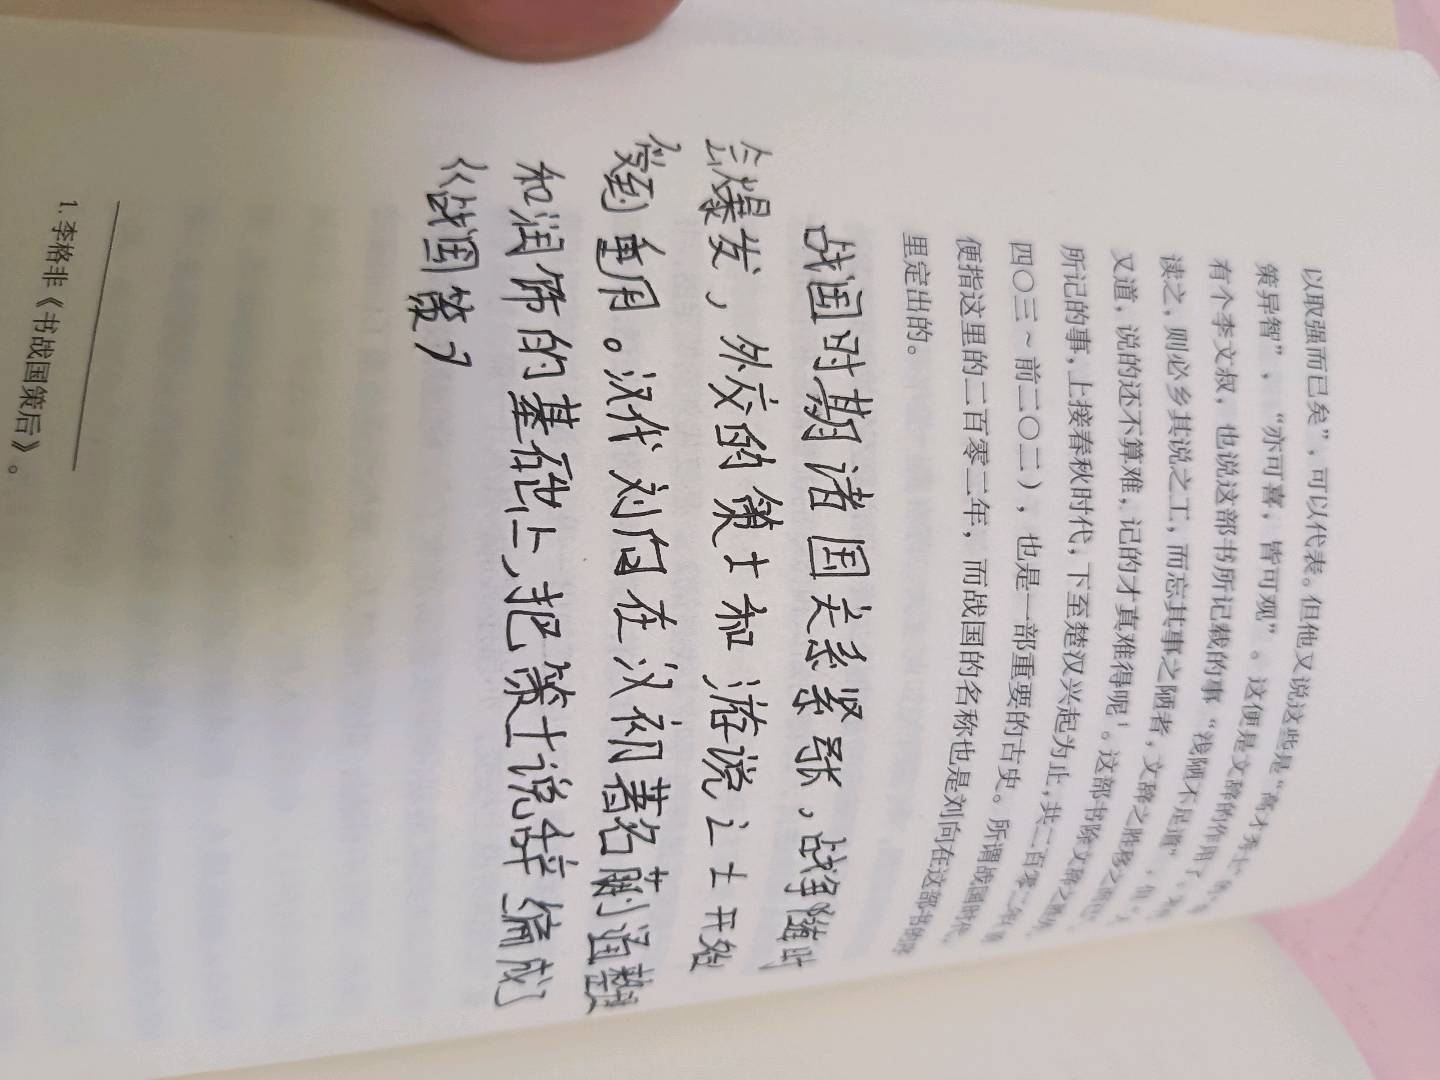 以取强而已矣”，可以代表。但他又说这些是“高才秀士”的“奇
策异智”，“亦可喜，皆可观”。这便是文辞的作用了。宋代
有个李文叔，也说这部书所记载的事“浅陋不足道”，但“人
读之，则必乡其说之工，而忘其事之陋者，文辞之胜移之而已”。
又道，说的还不算难，记的才真难得呢¹。这部书除文辞之胜外，
所记的事，上接春秋时代，下至楚汉兴起为止，共二百零二年（前
四〇三～前二〇二），也是一部重要的古史。所谓战国时代，
便指这里的二百零二年，而战国的名称也是刘向在这部书的序
里定出的。
战国时期诸国关系紧张，战争随时
会爆发，外交的策士和游说之士开始
受到重用。汉代刘向在汉初著名蒯通整理
和润饰的基础上，把策士说辞编成
《战国策》
1. 李格非《书战国策后》。